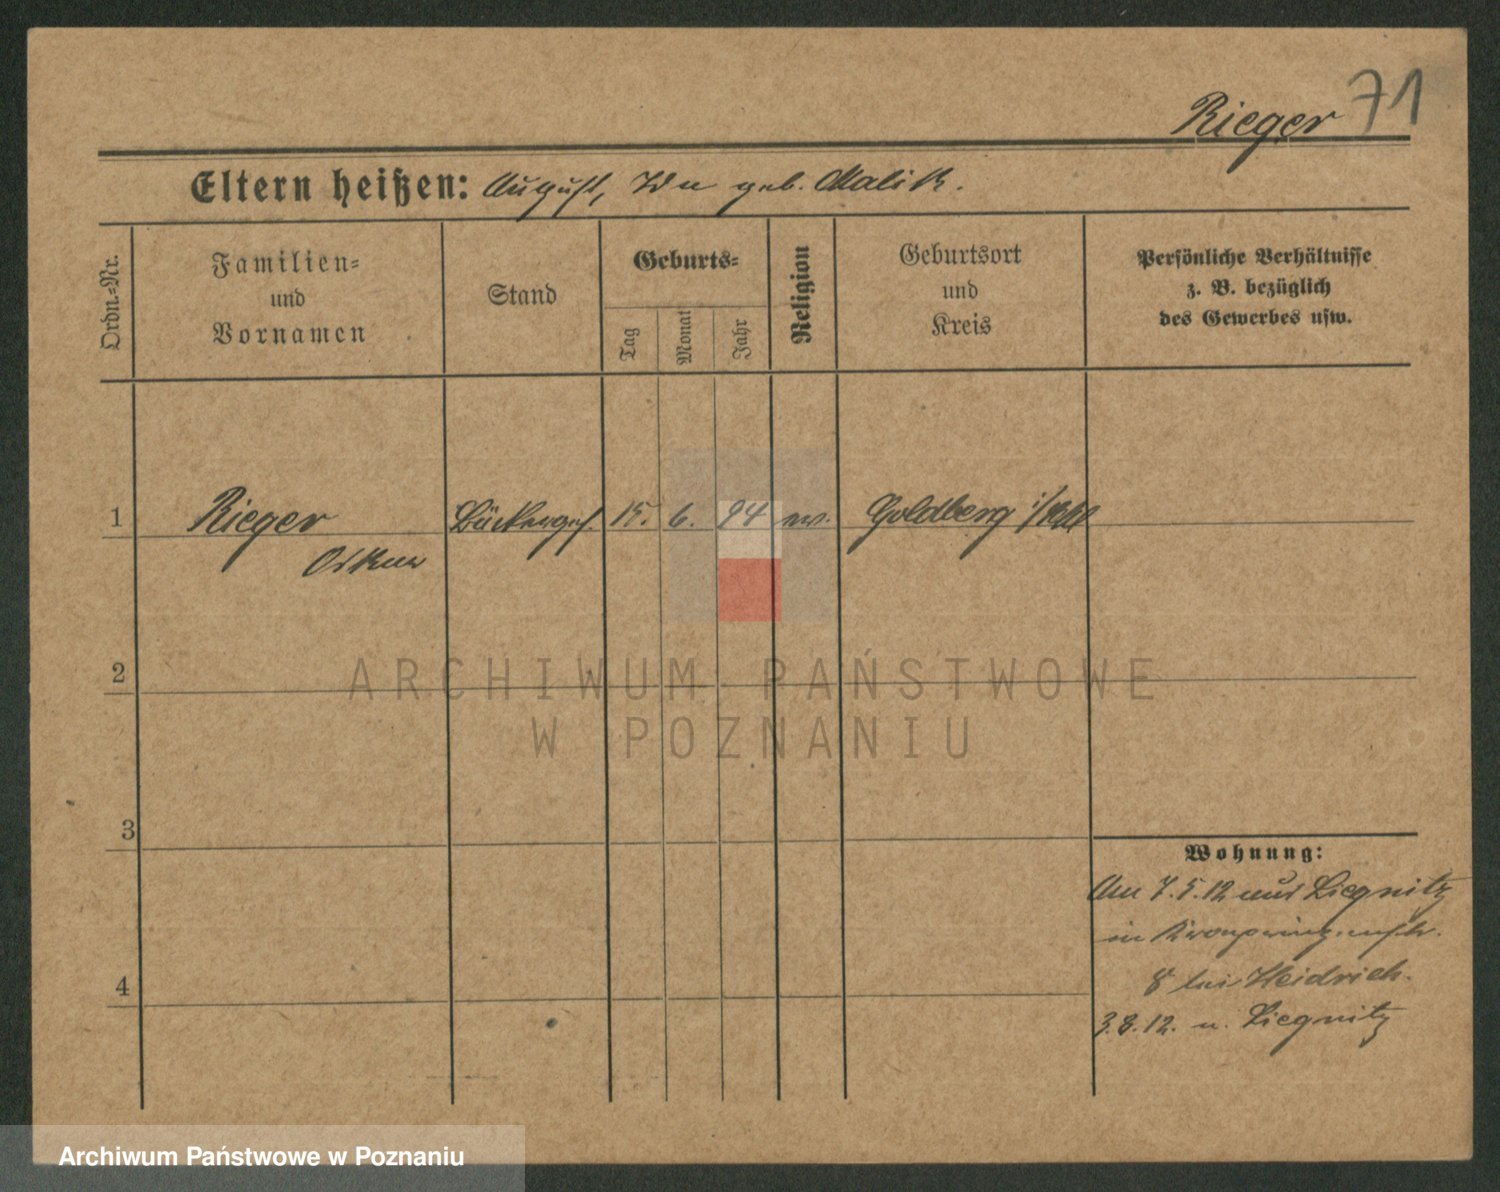 71
Rieger
Eltern heißen: August, Wu geb. Malik.
Ordn.=Nr.
Familien=
und
Vornamen
Stand
Geburts=
Tag
Monat
Jahr
Religion
Geburtsort
und
Kreis
Persönliche Verhältnisse
z. B. bezüglich
des Gewerbes usw.
1
Rieger
Oskar
Bäckerges.
15.
6.
94
ev.
Goldberg i/Schl
2
3
4
Wohnung:
Am 7.5.12 aus Liegnitz
in
8 bei Heidrich.
3.8.12. n. Liegnitz
ARCHIWUM PAŃSTWOWE
W POZNANIU
Archiwum Państwowe w Poznaniu